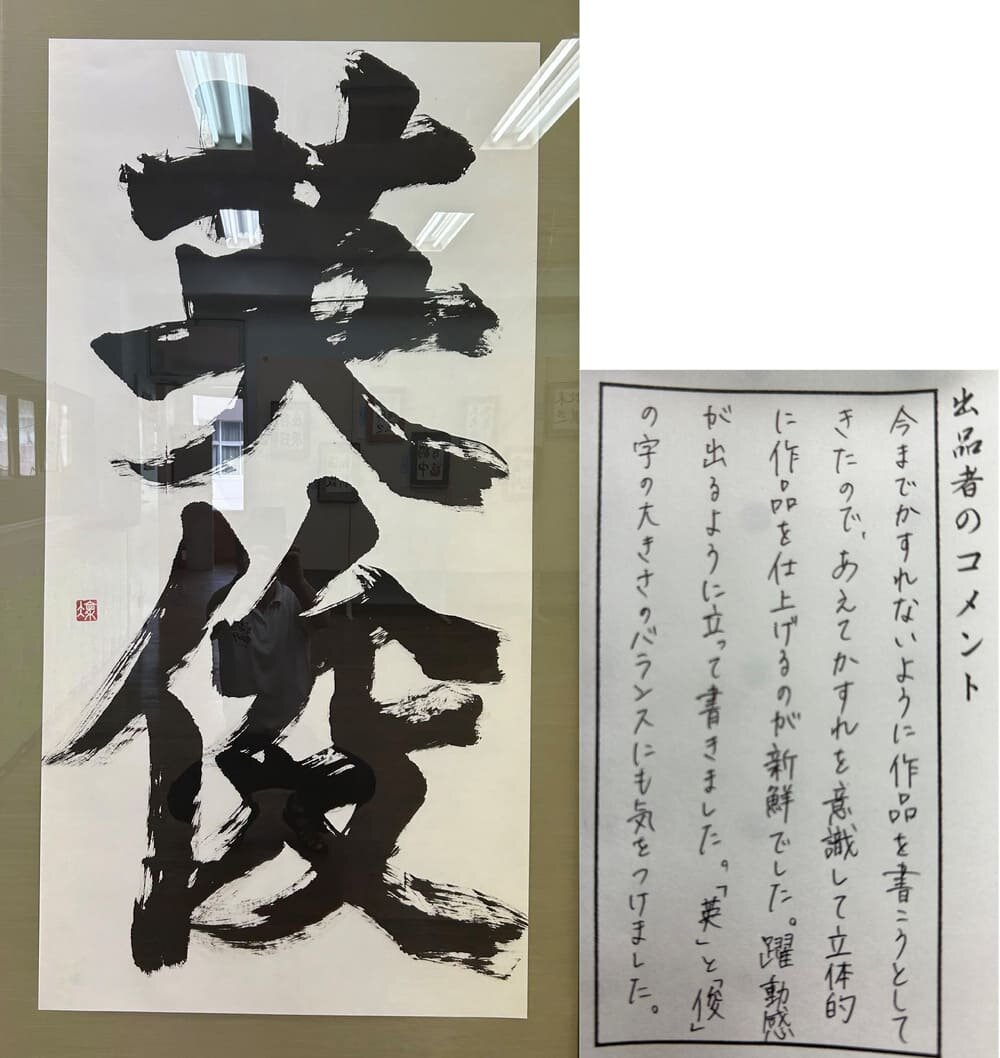 英俊
出品者のコメント
今までかすれないように作品を書こうとして
きたので、あえてかすれを意識して立体的
に作品を仕上げるのが新鮮でした。躍動感
が出るように立って書きました。「英」と「俊」
の字の大きさのバランスにも気をつけました。